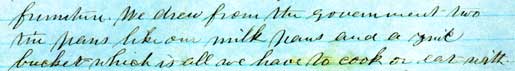 furniture. We drew from the government two
tin pans like our milk pans and a
bucket which is all we have to cook or eat with